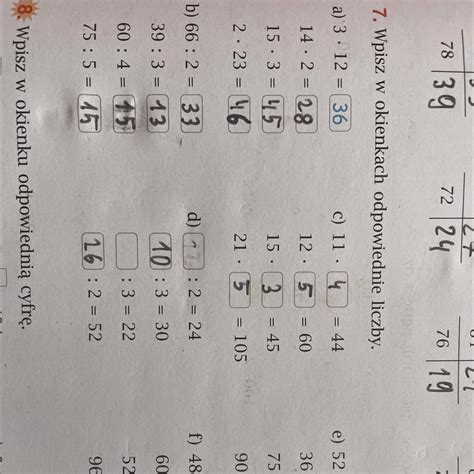 78 39 72 24 76 19
7. Wpisz w okienkach odpowiednie liczby.
a) 3 · 12 = 36 c) 11 · 4 = 44 e) 52
14 · 2 = 28 12 · 5 = 60 36
15 · 3 = 45 15 · 3 = 45 75
2 · 23 = 46 21 · 5 = 105 90
b) 66 : 2 = 33 d) : 2 = 24 f) 48
39 : 3 = 13 10 : 3 = 30 60
60 : 4 = 15 : 3 = 22 52
75 : 5 = 15 26 : 2 = 52 96
8 Wpisz w okienku odpowiednią cyfrę.